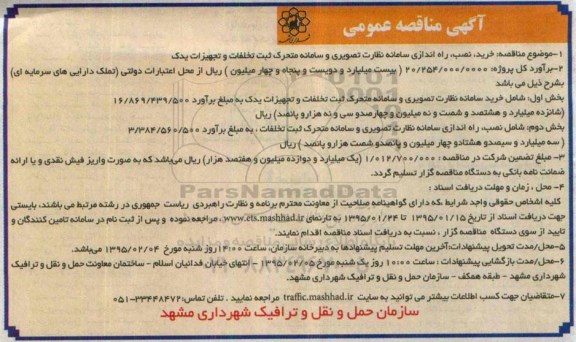 آگهی مناقصه عمومی
۱-موضوع مناقصه: خرید، نصب، راه اندازی سامانه نظارت تصویری و سامانه متحرک ثبت تخلفات و تجهیزات یدک
۲-برآورد کل پروژه: ۲۰/۲۵۴/۰۰۰/۰۰۰۰ ( بیست میلیارد و دویست و پنجاه و چهار میلیون ) ریال از محل اعتبارات دولتی (تملک دارایی های سرمایه ای)
بشرح ذیل می باشد
بخش اول: شامل خرید سامانه نظارت تصویری و سامانه متحرک ثبت تخلفات و تجهیزات یدک به مبلغ برآورد ۱۶/۸۶۹/۴۳۹/۵۰۰
(شانزده میلیارد و هشتصد و شصت و نه میلیون و چهارصدو سی و نه هزارو پانصد) ریال
بخش دوم: شامل نصب، راه اندازی سامانه نظارت تصویری و سامانه متحرک ثبت تخلفات ، به مبلغ برآورد ۳/۳۸۴/۵۶۰/۵۰۰
( سه میلیارد و سیصدو هشتادو چهار میلیون و پانصدو شصت هزارو پانصد) ریال
۳- مبلغ تضمین شرکت در مناقصه : ۱/۰۱۲/۷۰۰/۰۰۰ (یک میلیارد و دوازده میلیون و هفتصد هزار) ریال می‌باشد که به صورت واریز فیش نقدی و یا ارائه
ضمانت نامه بانکی به دستگاه مناقصه گزار تسلیم گردد.
۴- محل ، زمان و مهلت دریافت اسناد :
کلیه اشخاص حقوقی واجد شرایط ،که دارای گواهینامه صلاحیت از معاونت محترم برنامه و نظارت راهبردی ریاست جمهوری در رشته مرتبط می باشند، بایستی
جهت دریافت اسناد از تاریخ ۱۳۹۵/۰۱/۱۵ تا ۱۳۹۵/۰۱/۲۴ به تارنمای www.ets.mashhad.ir، مراجعه نموده و پس از ثبت نام در سامانه تامین کنندگان و
تایید از سوی دستگاه مناقصه گزار ، نسبت به دریافت اسناد مناقصه اقدام نمایند.
۵-محل/مدت تحویل پیشنهادات:آخرین مهلت تسلیم پیشنهادها به دبیرخانه سازمان، ساعت ۱۴:۰۰ روز شنبه مورخ ۱۳۹۵/۰۲/۰۴ می‌باشد.
۶-محل/مدت بازگشایی پیشنهادات : ساعت ۱۰:۰۰ روز یک شنبه مورخ ۱۳۹۵/۰۲/۰۵ - انتهای خیابان فدائیان اسلام - ساختمان معاونت حمل و نقل و ترافیک
شهرداری مشهد - طبقه همکف - سازمان حمل و نقل و ترافیک شهرداری مشهد.
۷-متقاضیان جهت کسب اطلاعات بیشتر می توانید به سایت traffic.mashhad.ir مراجعه نمایید . تلفن تماس:۳۳۴۴۸۴۷۲-۰۵۱
سازمان حمل و نقل و ترافیک شهرداری مشهد
ParsNamadData